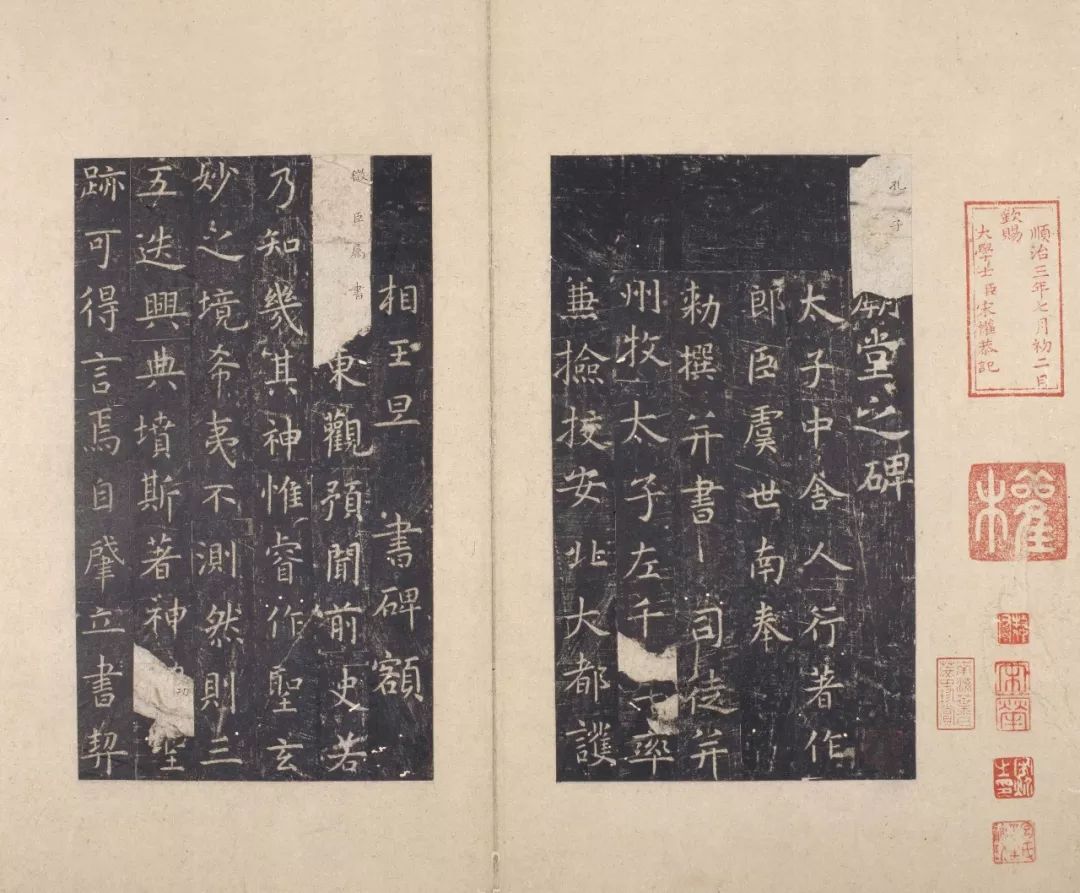 順治三年七月初二日
欽賜
大學士臣宋權恭記
權
孔子
廟堂之碑
太子中舍人行著作
郎臣虞世南奉
勅撰并書司徒并
州牧太子左千率
兼撿挍安北大都護
相王旦書碑額
微臣屬書
東觀預聞前史若
乃知幾其神惟睿作聖玄
妙之境希夷不測然則三
五迭興典墳斯著神功聖
跡可得言焉自肇立書契